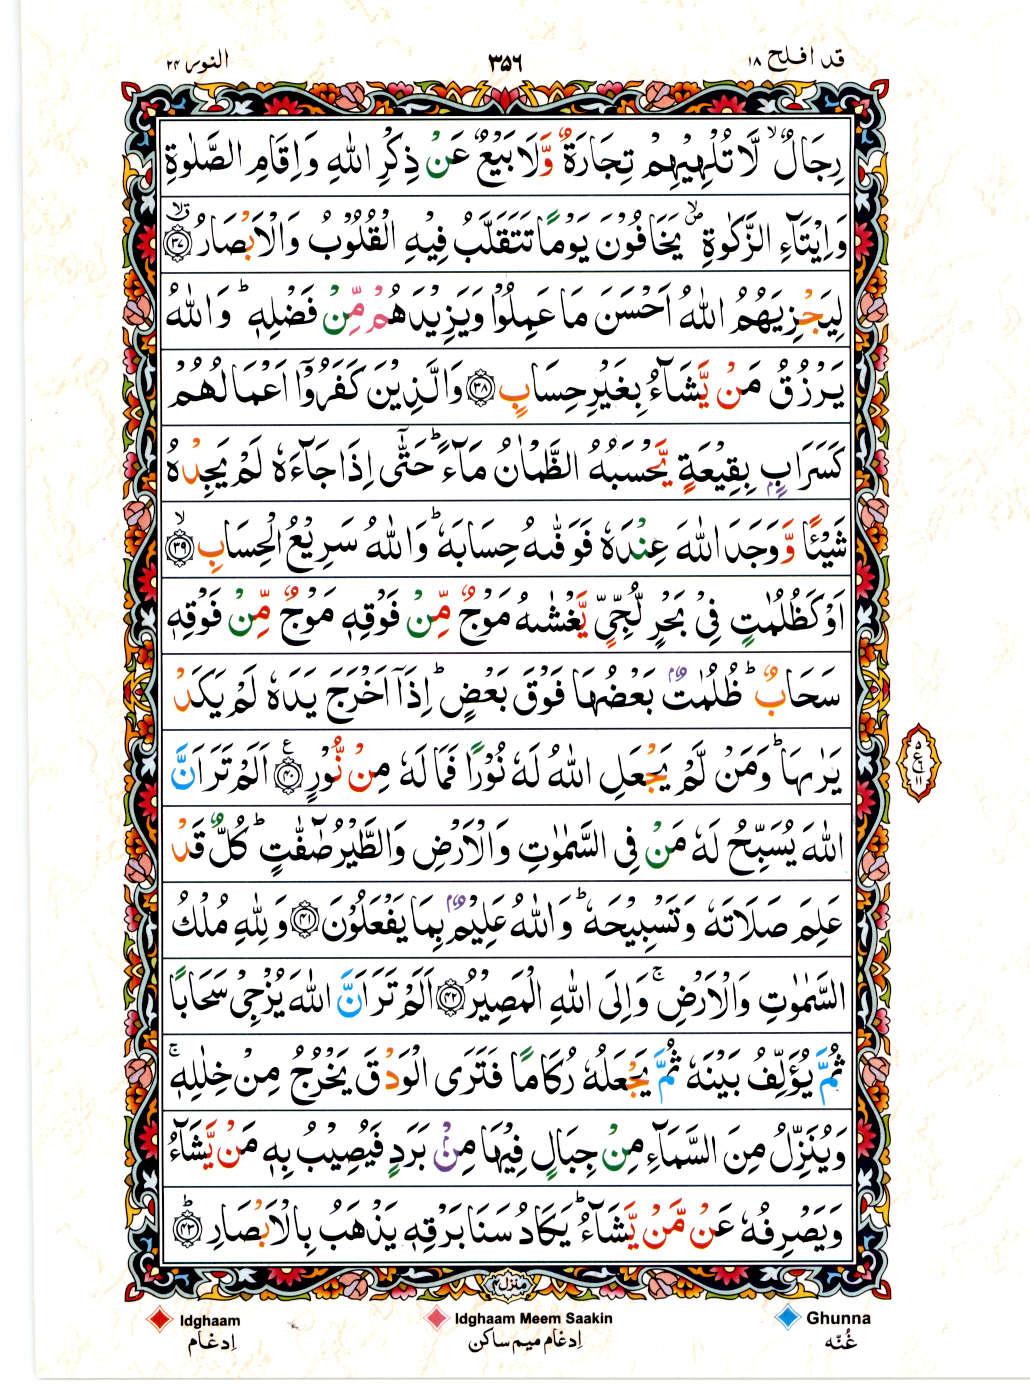 قد افلح ۱۸
۳۵۶
النور ۲۴
رِجَالٌ ۙ لَّا تُلْهِيْهِمْ تِجَارَةٌ وَّلَا بَيْعٌ عَنْ ذِكْرِ اللّٰهِ وَاِقَامِ الصَّلٰوةِ
وَاِيْتَآءِ الزَّكٰوةِ ۙ يَخَافُوْنَ يَوْمًا تَتَقَلَّبُ فِيْهِ الْقُلُوْبُ وَالْاَبْصَارُ ۙ ﴿۳۷﴾
لِيَجْزِيَهُمُ اللّٰهُ اَحْسَنَ مَا عَمِلُوْا وَيَزِيْدَهُمْ مِّنْ فَضْلِهٖ ؕ وَاللّٰهُ
يَرْزُقُ مَنْ يَّشَآءُ بِغَيْرِ حِسَابٍ ﴿۳۸﴾ وَالَّذِيْنَ كَفَرُوْۤا اَعْمَالُهُمْ
كَسَرَابٍۭ بِقِيْعَةٍ يَّحْسَبُهُ الظَّمْاٰنُ مَآءً ؕ حَتّٰۤى اِذَا جَآءَهٗ لَمْ يَجِدْهُ
شَيْـًٔا وَّوَجَدَ اللّٰهَ عِنْدَهٗ فَوَفّٰىهُ حِسَابَهٗ ؕ وَاللّٰهُ سَرِيْعُ الْحِسَابِ ۙ ﴿۳۹﴾
اَوْ كَظُلُمٰتٍ فِيْ بَحْرٍ لُّجِّيٍّ يَّغْشٰىهُ مَوْجٌ مِّنْ فَوْقِهٖ مَوْجٌ مِّنْ فَوْقِهٖ
سَحَابٌ ؕ ظُلُمٰتٌۢ بَعْضُهَا فَوْقَ بَعْضٍ ؕ اِذَاۤ اَخْرَجَ يَدَهٗ لَمْ يَكَدْ
يَرٰىهَا ؕ وَمَنْ لَّمْ يَجْعَلِ اللّٰهُ لَهٗ نُوْرًا فَمَا لَهٗ مِنْ نُّوْرٍ ﴿۴۰﴾ۧ اَلَمْ تَرَ اَنَّ
اللّٰهَ يُسَبِّحُ لَهٗ مَنْ فِى السَّمٰوٰتِ وَالْاَرْضِ وَالطَّيْرُ صٰٓفّٰتٍ ؕ كُلٌّ قَدْ
عَلِمَ صَلَاتَهٗ وَتَسْبِيْحَهٗ ؕ وَاللّٰهُ عَلِيْمٌۢ بِمَا يَفْعَلُوْنَ ﴿۴۱﴾ وَلِلّٰهِ مُلْكُ
السَّمٰوٰتِ وَالْاَرْضِ ۚ وَاِلَى اللّٰهِ الْمَصِيْرُ ﴿۴۲﴾ اَلَمْ تَرَ اَنَّ اللّٰهَ يُزْجِيْ سَحَابًا
ثُمَّ يُؤَلِّفُ بَيْنَهٗ ثُمَّ يَجْعَلُهٗ رُكَامًا فَتَرَى الْوَدْقَ يَخْرُجُ مِنْ خِلٰلِهٖ ۚ
وَيُنَزِّلُ مِنَ السَّمَآءِ مِنْ جِبَالٍ فِيْهَا مِنْۢ بَرَدٍ فَيُصِيْبُ بِهٖ مَنْ يَّشَآءُ
وَيَصْرِفُهٗ عَنْ مَّنْ يَّشَآءُ ؕ يَكَادُ سَنَا بَرْقِهٖ يَذْهَبُ بِالْاَبْصَارِ ؕ ﴿۴۳﴾
منزل ۴
Ghunna
غُنّه
Idghaam Meem Saakin
اِدغام میم ساکن
Idghaam
اِدغام